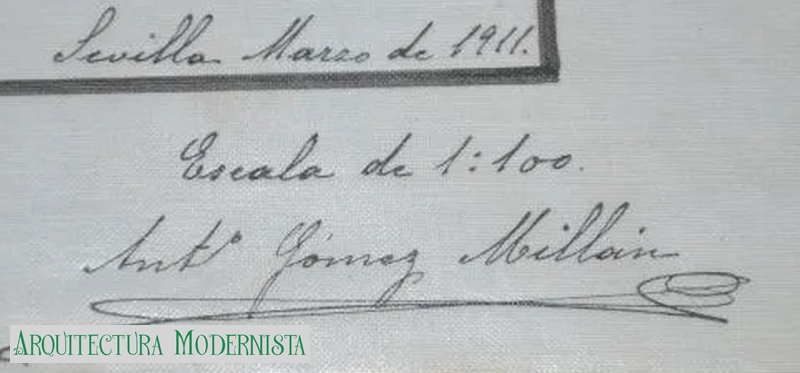 Sevilla Marzo de 1911.
Escala de 1:100.
Antº Gómez Millán
Arquitectura Modernista